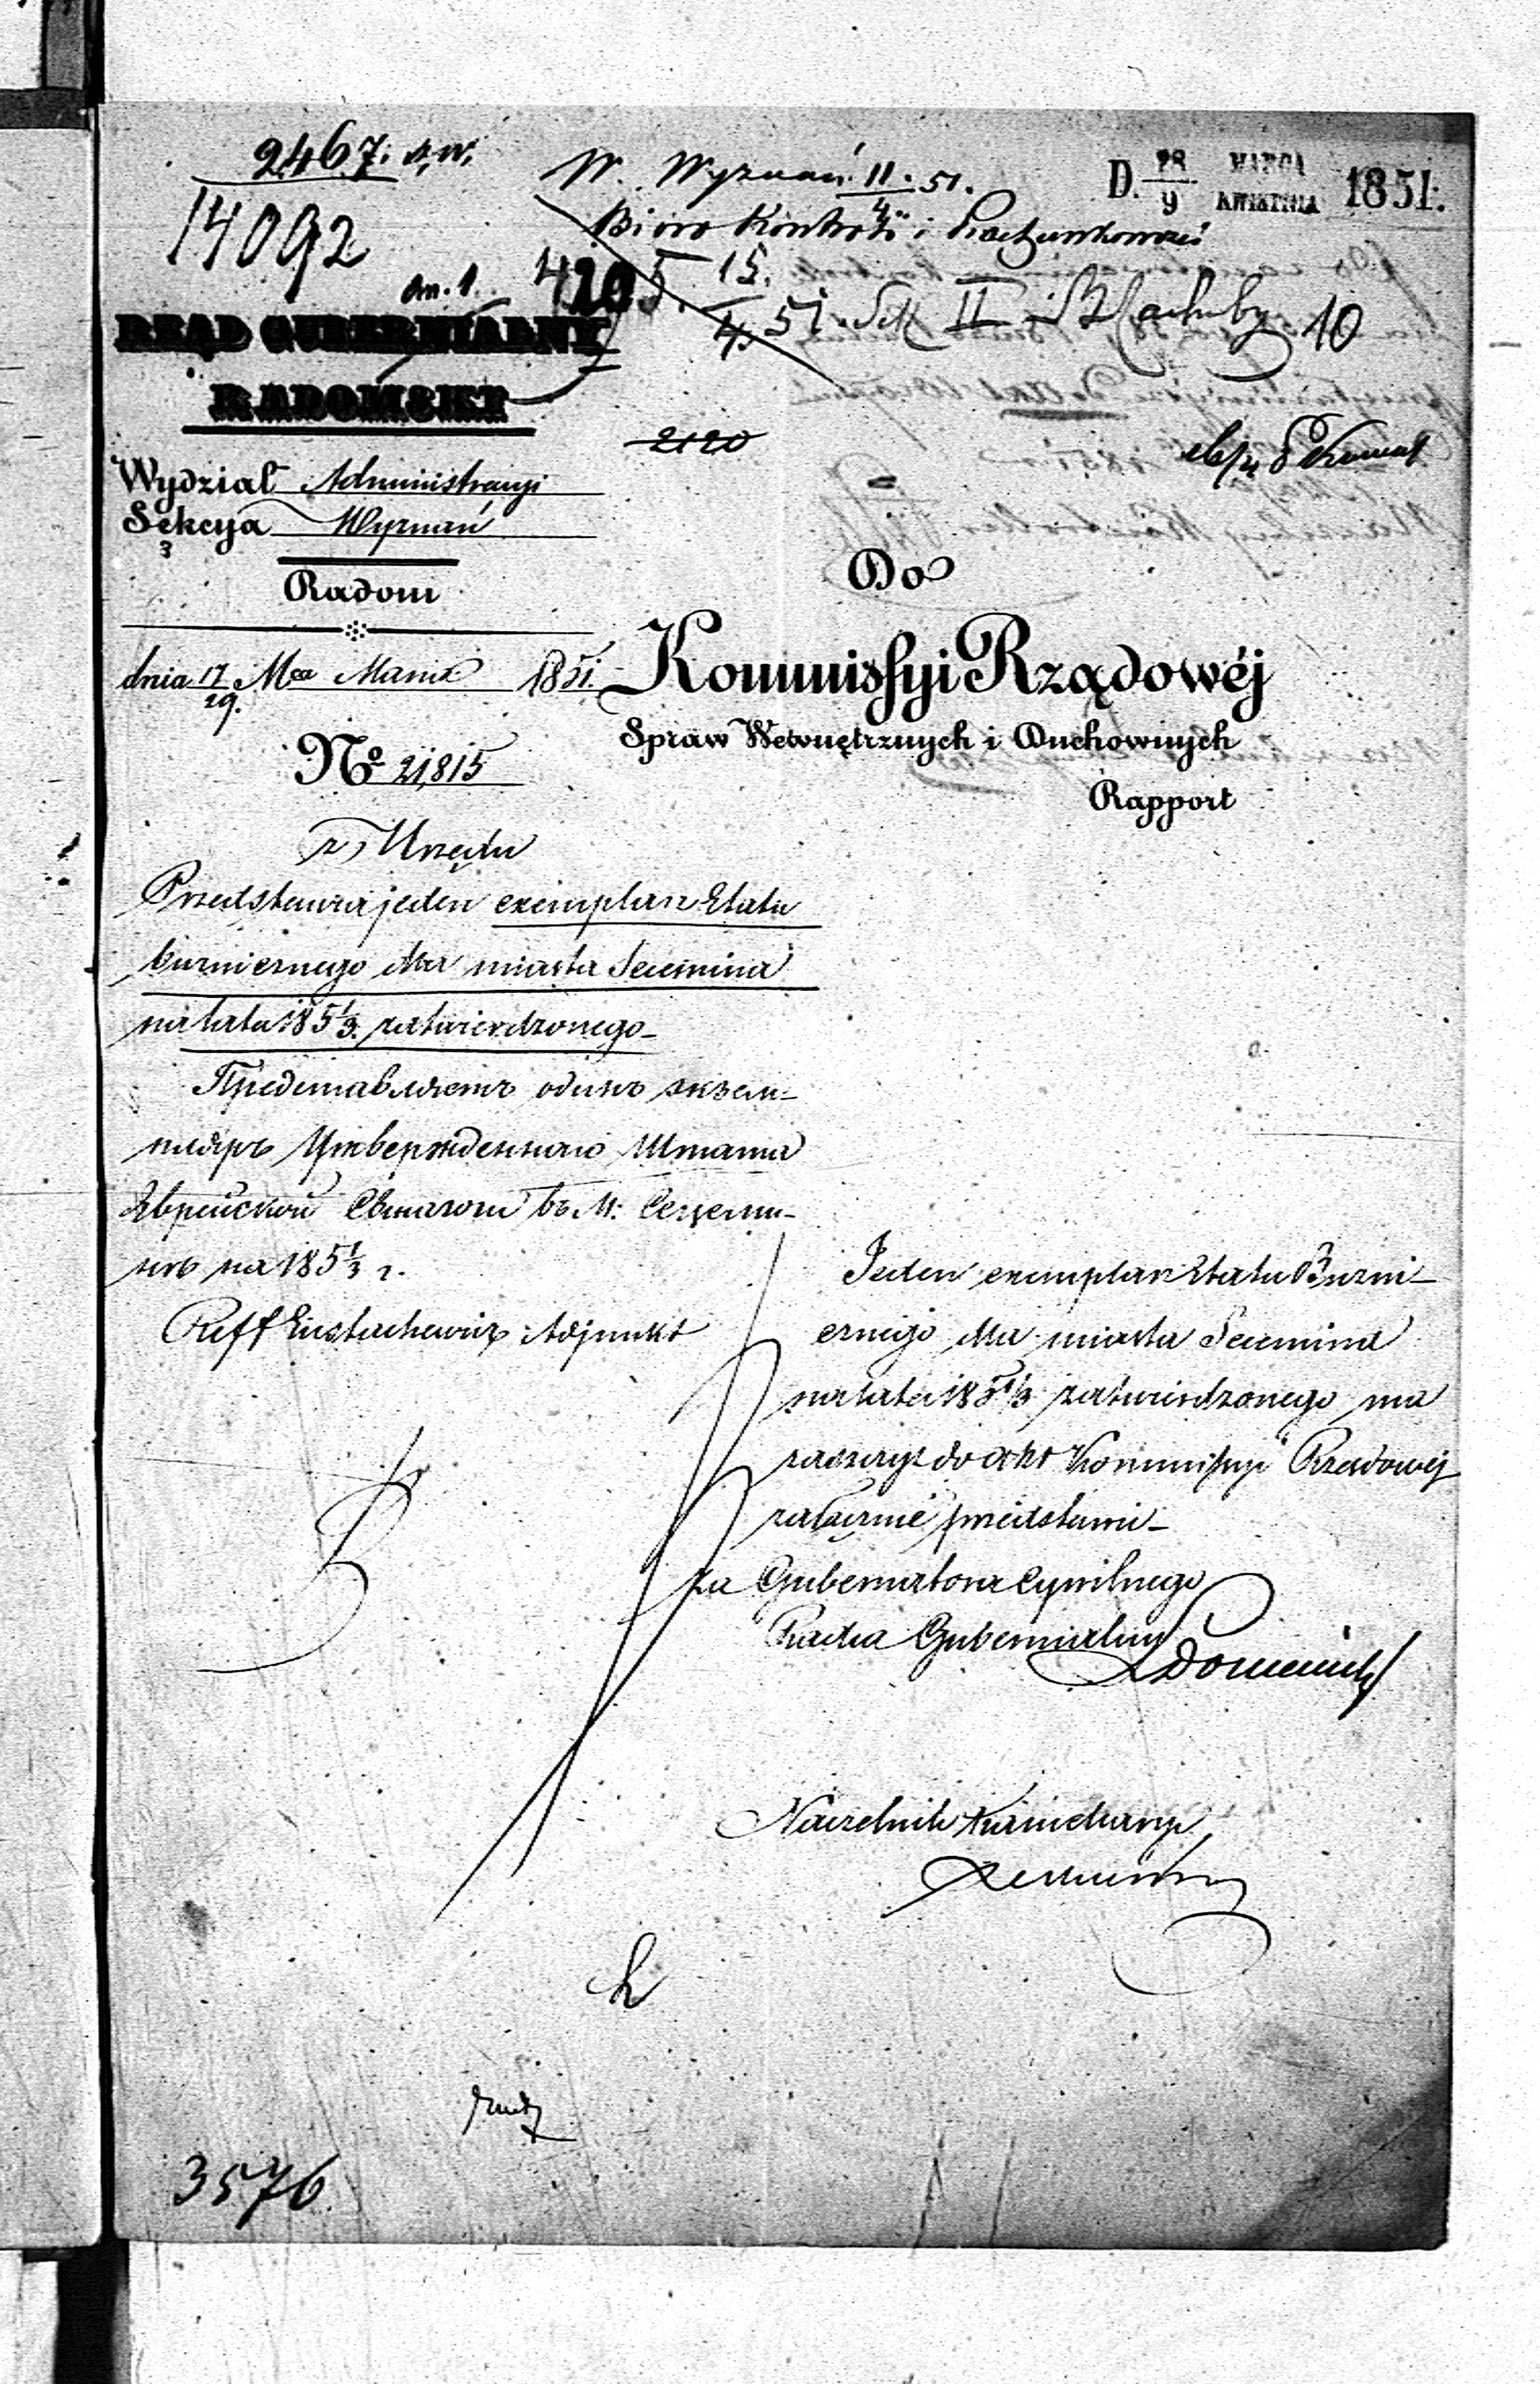 2467. s.w.
14092
W. Wyznań 11/4 51.
D. 28/9 MARCA KWIETNIA 1851.
Bióro Kontroli i Rachunkowości
an. 1.
4205. 15/4 51. II Rachuby 10
RZĄD GUBERNIALNY
RADOMSKI
2120
Wydział Administracyi
Sekcya Wyznań
Radom
dnia 17/29 Mca Marca 1851.
No 21,815
Do
Kommissyi Rządowéj
Spraw Wewnętrznych i Duchownych
Rapport
z Urzędu
Przedstawia jeden exemplarz Etatu
bużnicznego dla miasta Secemina
na lata 185 1/3 zatwierdzonego
Представляетъ одинъ экзем-
пляръ Утвержденнаго Штата
Еврейской Синагоги въ М: Сецеми-
нѣ на 185 1/3 г.
Reff Eustachewicz Adjunkt
Jeden exemplarz Etatu Bużni-
cznego dla miasta Secemina
na lata 185 1/3 zatwierdzonego ma
zaszczyt do akt Kommissyi Rządowéj
załącznie przedstawić
za Gubernatora Cywilnego
Radca Gubernialny
Naczelnik Kancellaryi
3576